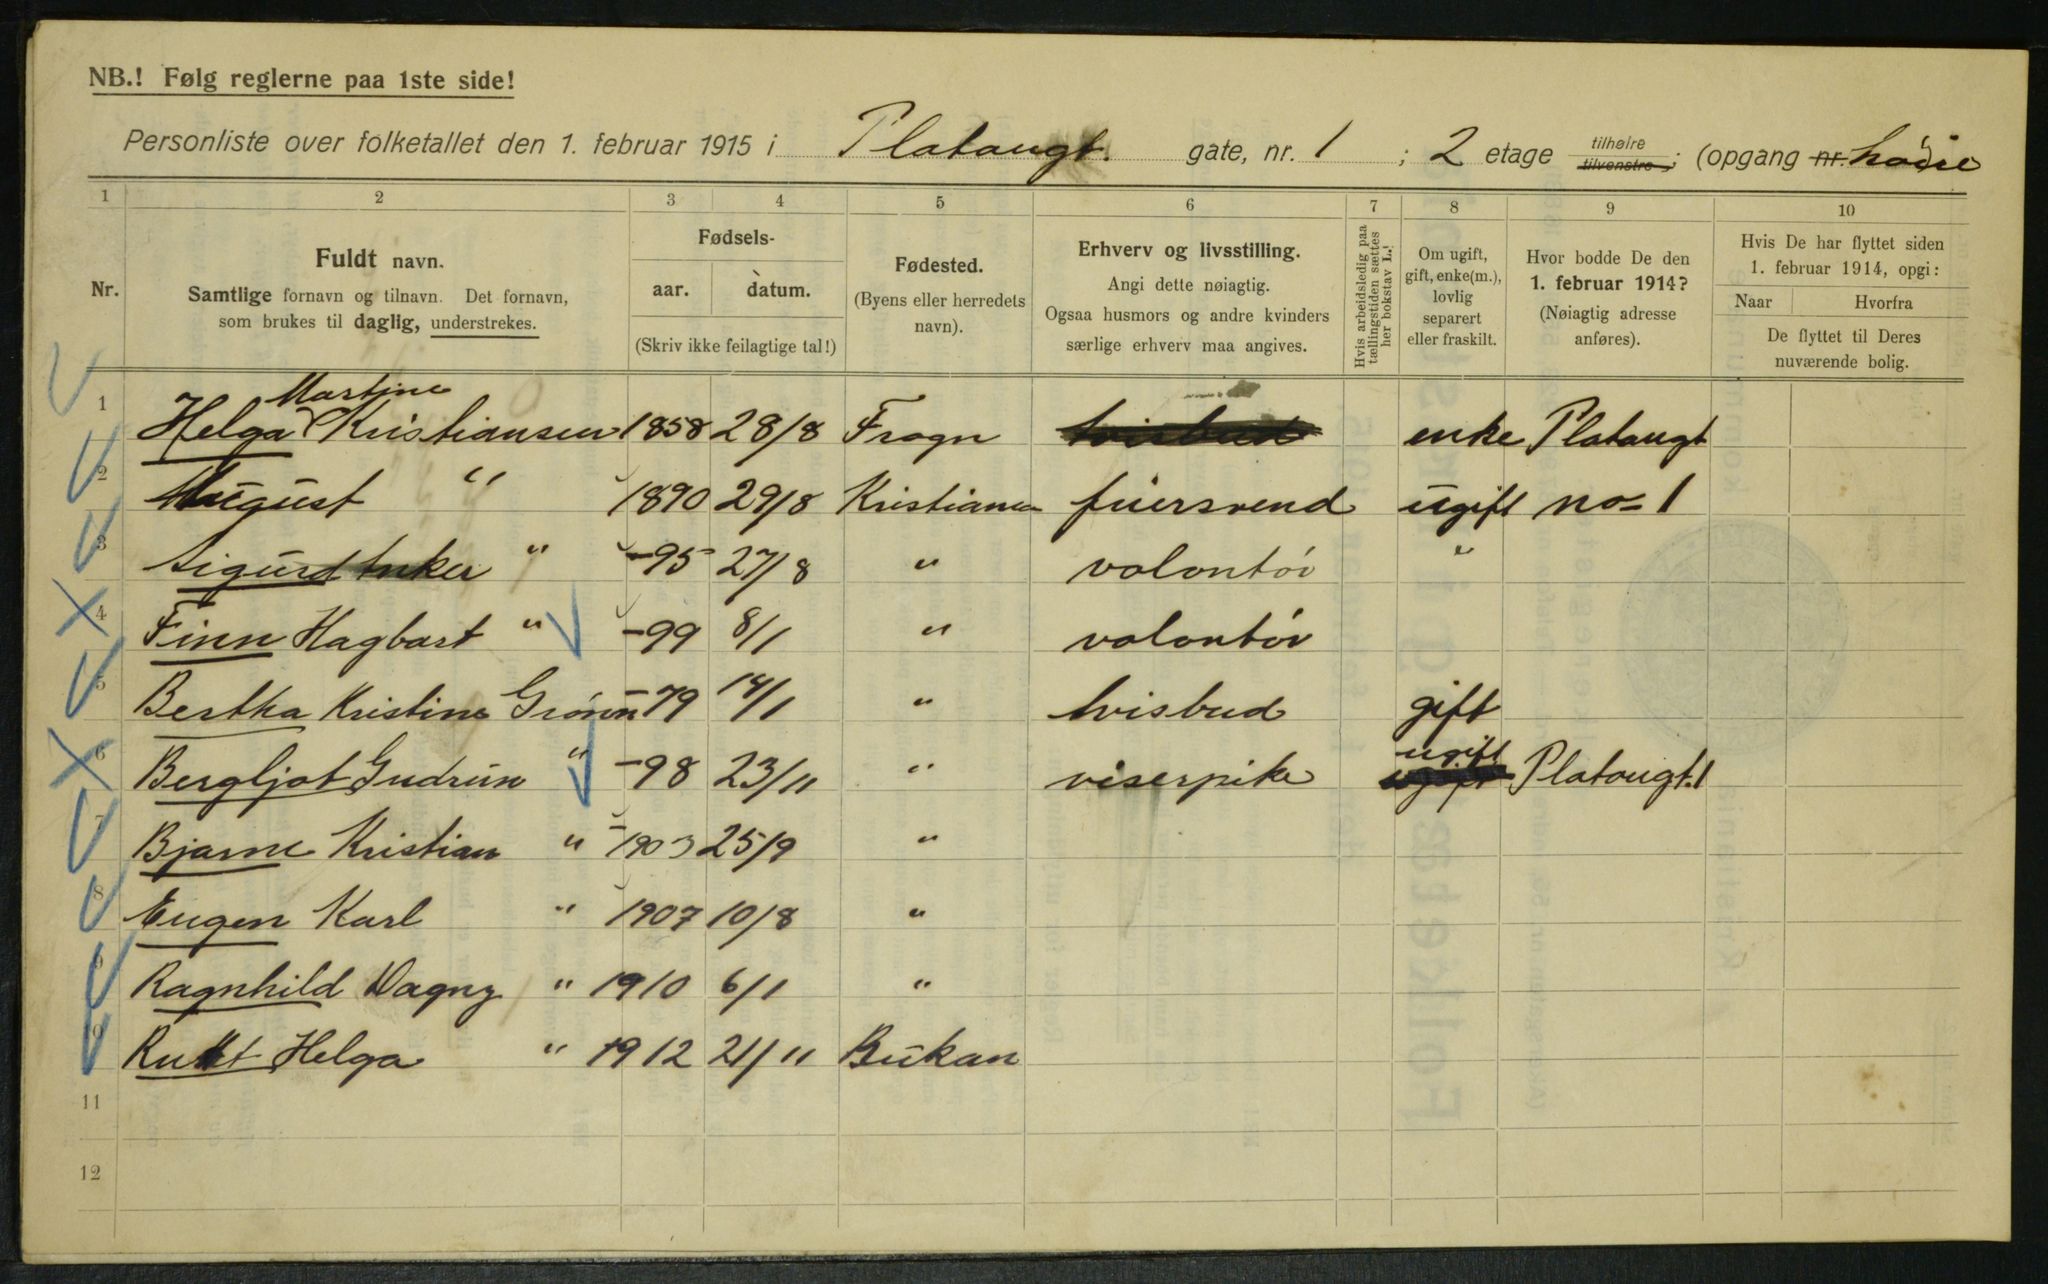 NB.! Følg reglerne paa 1ste side!
Personliste over folketallet den 1. februar 1915 i Platougt. gate, nr. 1 ; 2 etage tilhøire tilvenstre; (opgang nr.
1 2 3 4 5 6 7 8 9 10
Nr.
Fuldt navn.
Samtlige fornavn og tilnavn. Det fornavn,
som brukes til daglig, understrekes.
Fødsels-
aar. datum.
(Skriv ikke feilagtige tal!)
Fødested.
(Byens eller herredets
navn).
Erhverv og livsstilling.
Angi dette nøiagtig.
Ogsaa husmors og andre kvinders
særlige erhverv maa angives.
Hvis arbeidsledig paa
tællingstiden sættes
her bokstav L.!
Om ugift,
gift, enke(m.),
lovlig
separert
eller fraskilt.
Hvor bodde De den
1. februar 1914?
(Nøiagtig adresse
anføres).
Hvis De har flyttet siden
1. februar 1914, opgi:
Naar Hvorfra
De flyttet til Deres
nuværende bolig.
Martine
1 Helga Kristiansen 1858 28/8 Frogn enke Platougt
2 August " 1890 29/8 Kristiania ugift no= 1
3 Sigurd " -95 27/8 " volontør "
4 Finn Hagbart " -99 8/1 " volontør
5 Bertha Kristine Grønn -79 14/1 " hvisbud gift
ugift
6 Bergljot Gudrun " -98 23/11 " viserpike ugift Platougt. 1
7 Bjarne Kristian " -1903 25/9 "
8 Eugen Karl " 1907 10/8 "
9 Ragnhild Dagny " 1910 6/1 "
10 Rutt Helga " 1912 21/11
11
12